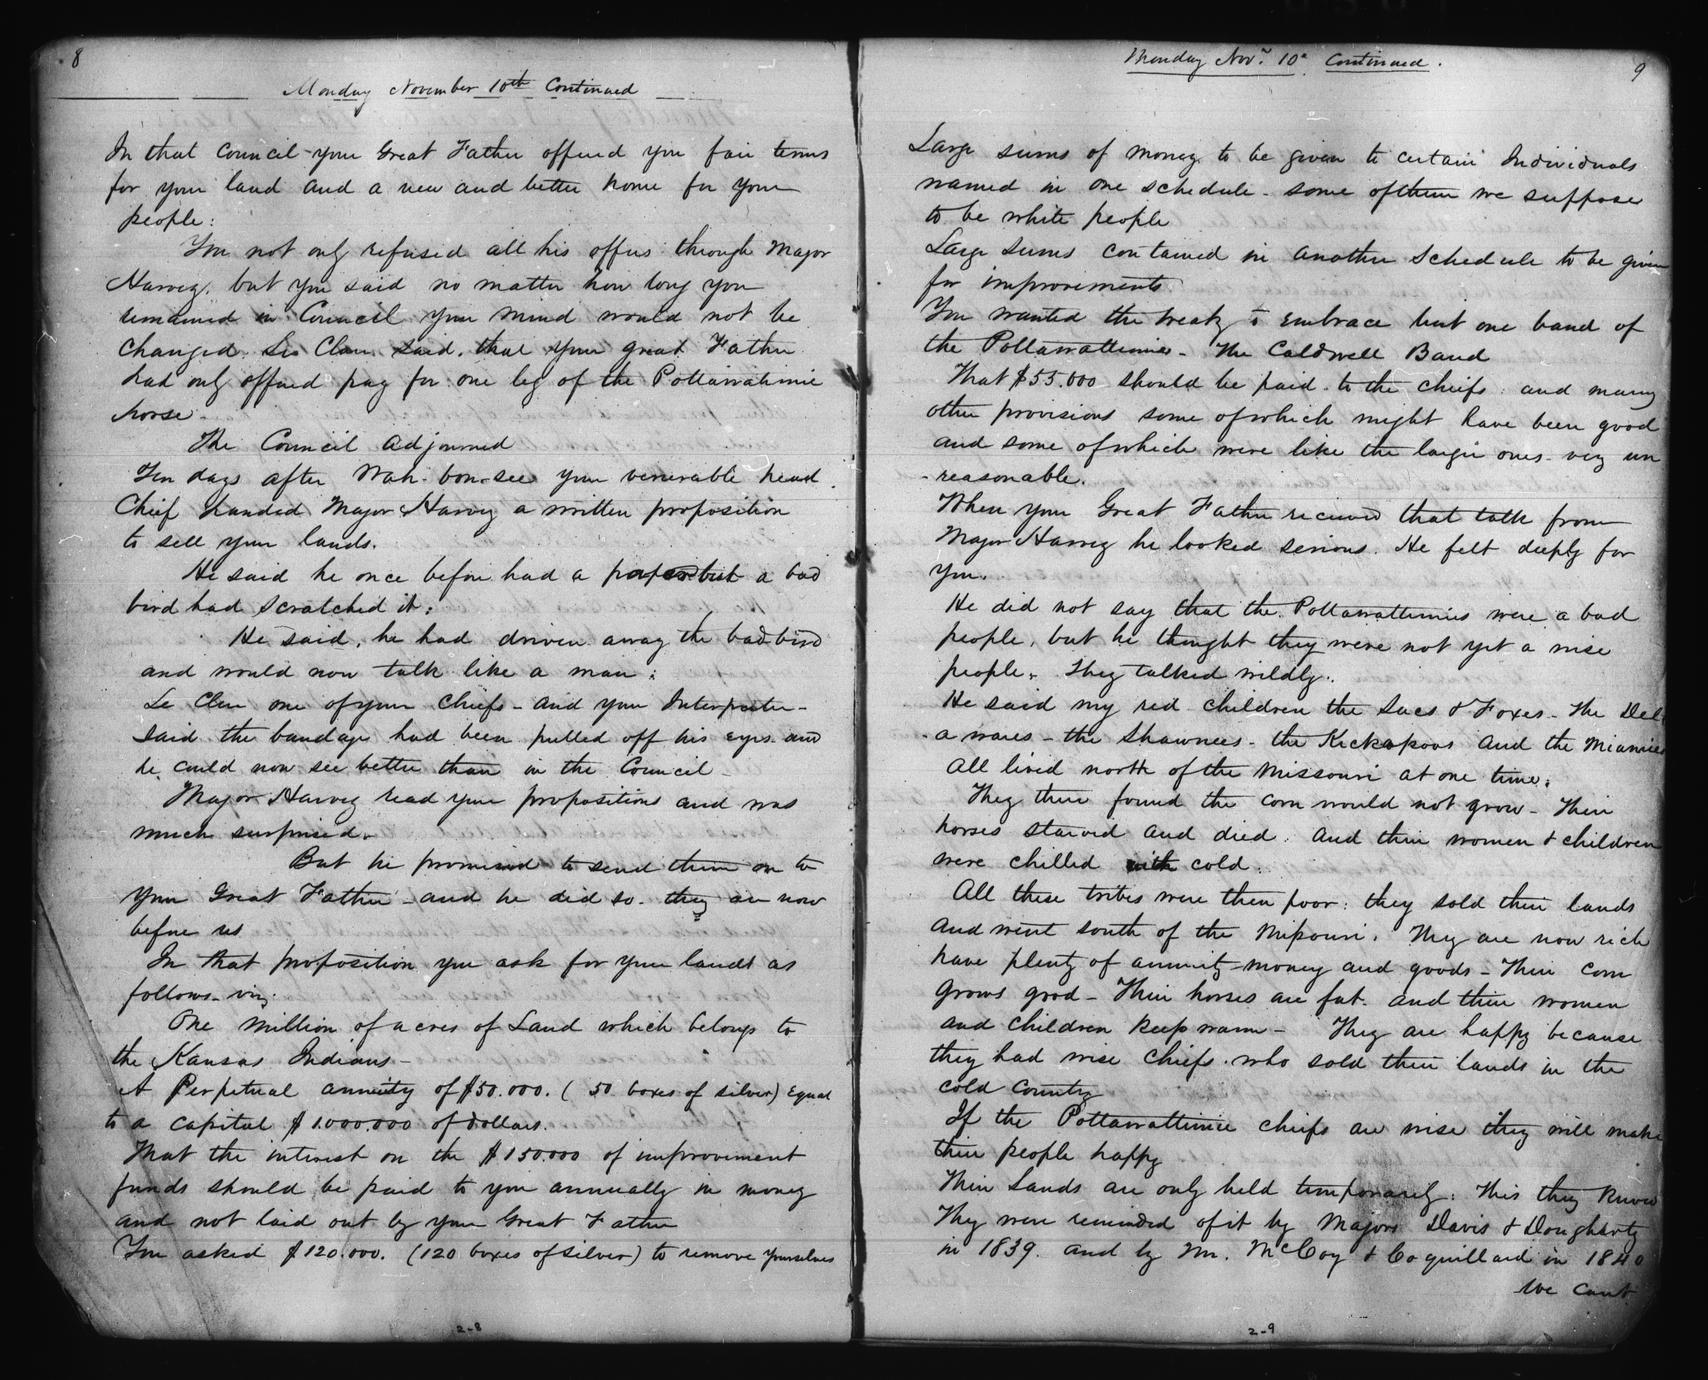 8
Monday November 10th Continued
In that Council your Great Father offered you fair terms
for your land and a new and better home for your
people:
You not only refused all his offers through Major
Harvey, but you said no matter how long you
remained in Council your mind would not be
Changed. Le Clere Said, that your great Father
had only offered pay for one leg of the Pottawatimie
horse.
The Council adjourned
Ten days after Wah-bon-see your venerable head
Chief handed Major Harvey a written proposition
to sell your lands.
He said he once before had a paper but a bad
bird had scratched it:
He said, he had driven away the bad bird
and would now talk like a man:
Le Clere one of your Chiefs - and your Interpreter -
said the bandage had been pulled off his eyes and
he could now see better than in the Council -
Major Harvey read your propositions and was
much surprised.
But he promised to send them on to
your Great Father - and he did so - they are now
before us
In that proposition you ask for your lands as
follows - viz.
One Million of acres of Land which belongs to
the Kansas Indians -
A Perpetual annuity of $50.000. ( 50 boxes of silver) Equal
to a capital $ 1.000.000 of dollars.
That the interest on the $150.000 of improvement
funds should be paid to you annually in money
and not laid out by your Great Father
You asked $120.000. (120 boxes of silver) to remove yourselves
2-8
Monday Novr. 10th Continued.
9
Large sums of money to be given to certain Individuals
named in one schedule - some of them we suppose
to be white people
Large sums contained in another Schedule to be given
for improvements
You wanted the treaty to Embrace but one band of
the Pottawattimies - The Caldwell Band
That $55.000 should be paid to the chiefs: and many
other provisions some of which might have been good
and some of which were like the larger ones - very un
- reasonable.
When your Great Father received that talk from
Major Harvey he looked serious. He felt deeply for
you.
He did not say that the Pottawattimies were a bad
people, but he thought they were not yet a wise
people. They talked wildly.
He said my red children the Sacs & Foxes - the Del
- a wares - the Shawnees - the Kickapoos and the Miamies
all lived north of the Missouri at one time.
They there found the corn would not grow - Their
horses starved and died: and their women & children
were chilled with cold.
All these tribes were then poor: they sold their lands
and went south of the Missouri. They are now rich
have plenty of annuity money and goods - Their corn
grows good - Their horses are fat - and their women
and children keep warm - They are happy because
they had wise chiefs who sold their lands in the
cold Country
If the Pottawattimie chiefs are wise they will make
their people happy
Their Lands are only held temporarily: This they know
They were reminded of it by Majors Davis & Dougharty
in 1839. and by Mr. McCoy & Coquillard in 1840
We cant
2-9